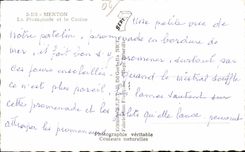 MENTON
La Promenade et le Casino
Une petite vue de
notre patelin, promenade en bordure de
mer, il fait bon s'y promener, surtout par
ces jours ensoleillés. Quand le mistral souffle
ce n'est plus pareil. Les lames sautent sur
cette promenade et les galets qu'elle lance, peuvent
attraper les promeneurs
Photographie véritable
Couleurs naturelles